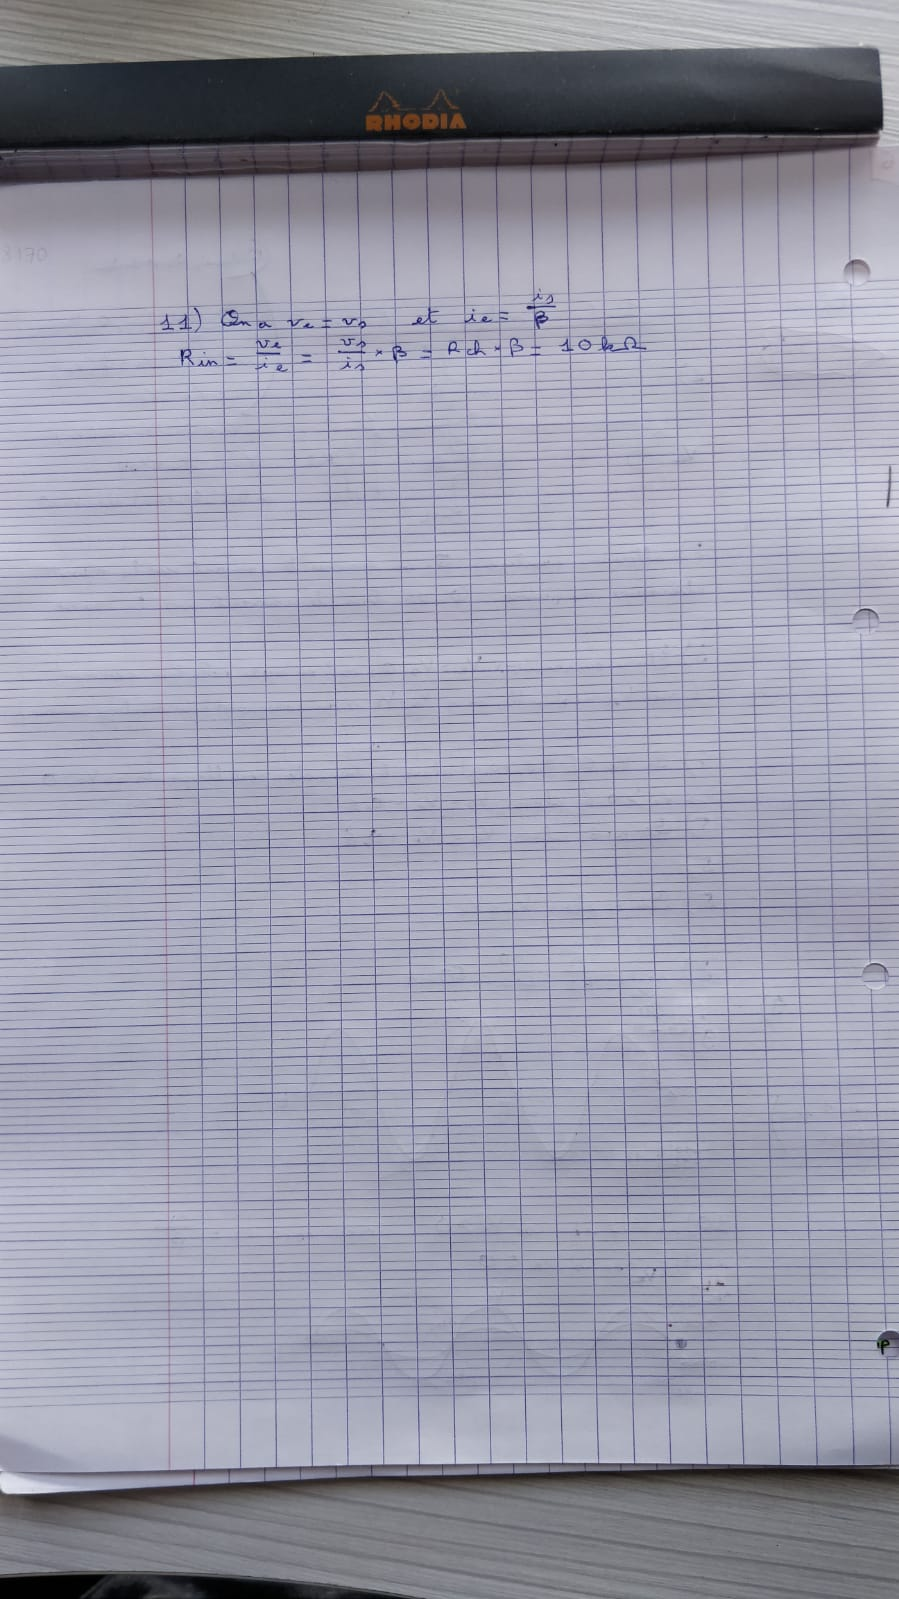 RHODIA
11) On a ve = vs et ie = is/β
Rin = ve/ie = vs/is × β = Rch × β = 10 kΩ